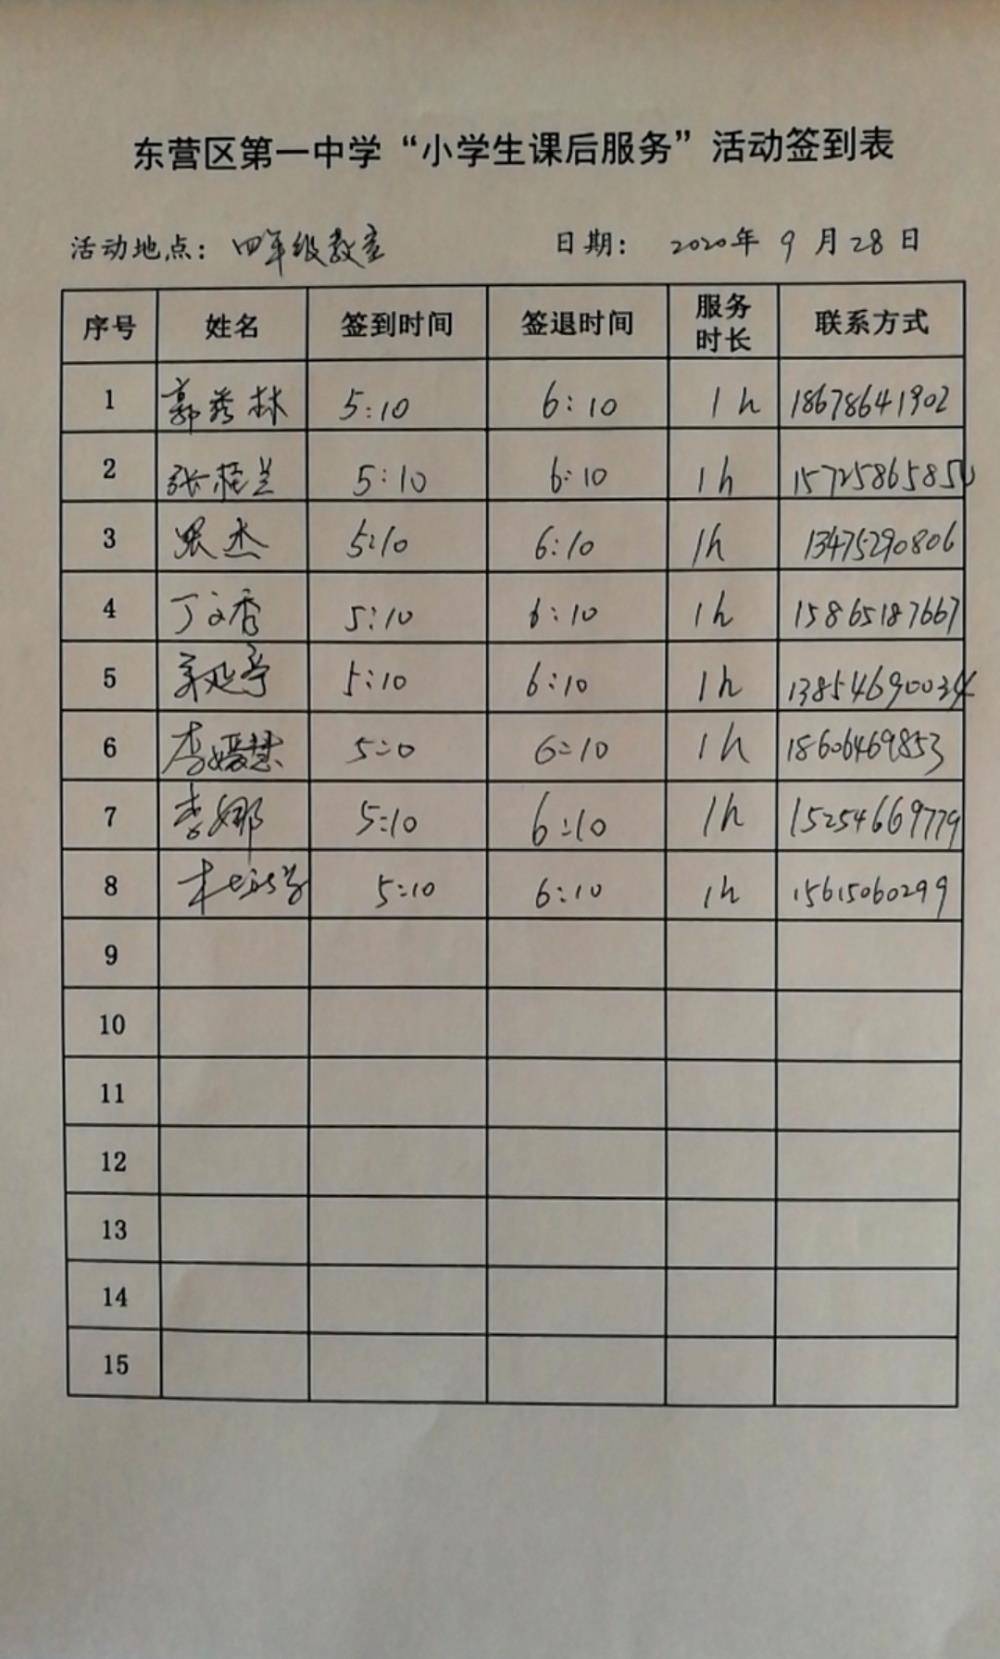 东营区第一中学“小学生课后服务”活动签到表
活动地点：四年级教室 日期：2020年9月28日
序号 姓名 签到时间 签退时间 服务时长 联系方式
1 郭秀林 5:10 6:10 1h 18678641902
2 张桂兰 5:10 6:10 1h
3 5:10 6:10 1h 13475290806
4 丁文香 5:10 6:10 1h 15865187667
5 5:10 6:10 1h
6 李媛慧 5:10 6:10 1h 18606469853
7 李娜 5:10 6:10 1h 15254669779
8 5:10 6:10 1h 15615060299
9
10
11
12
13
14
15